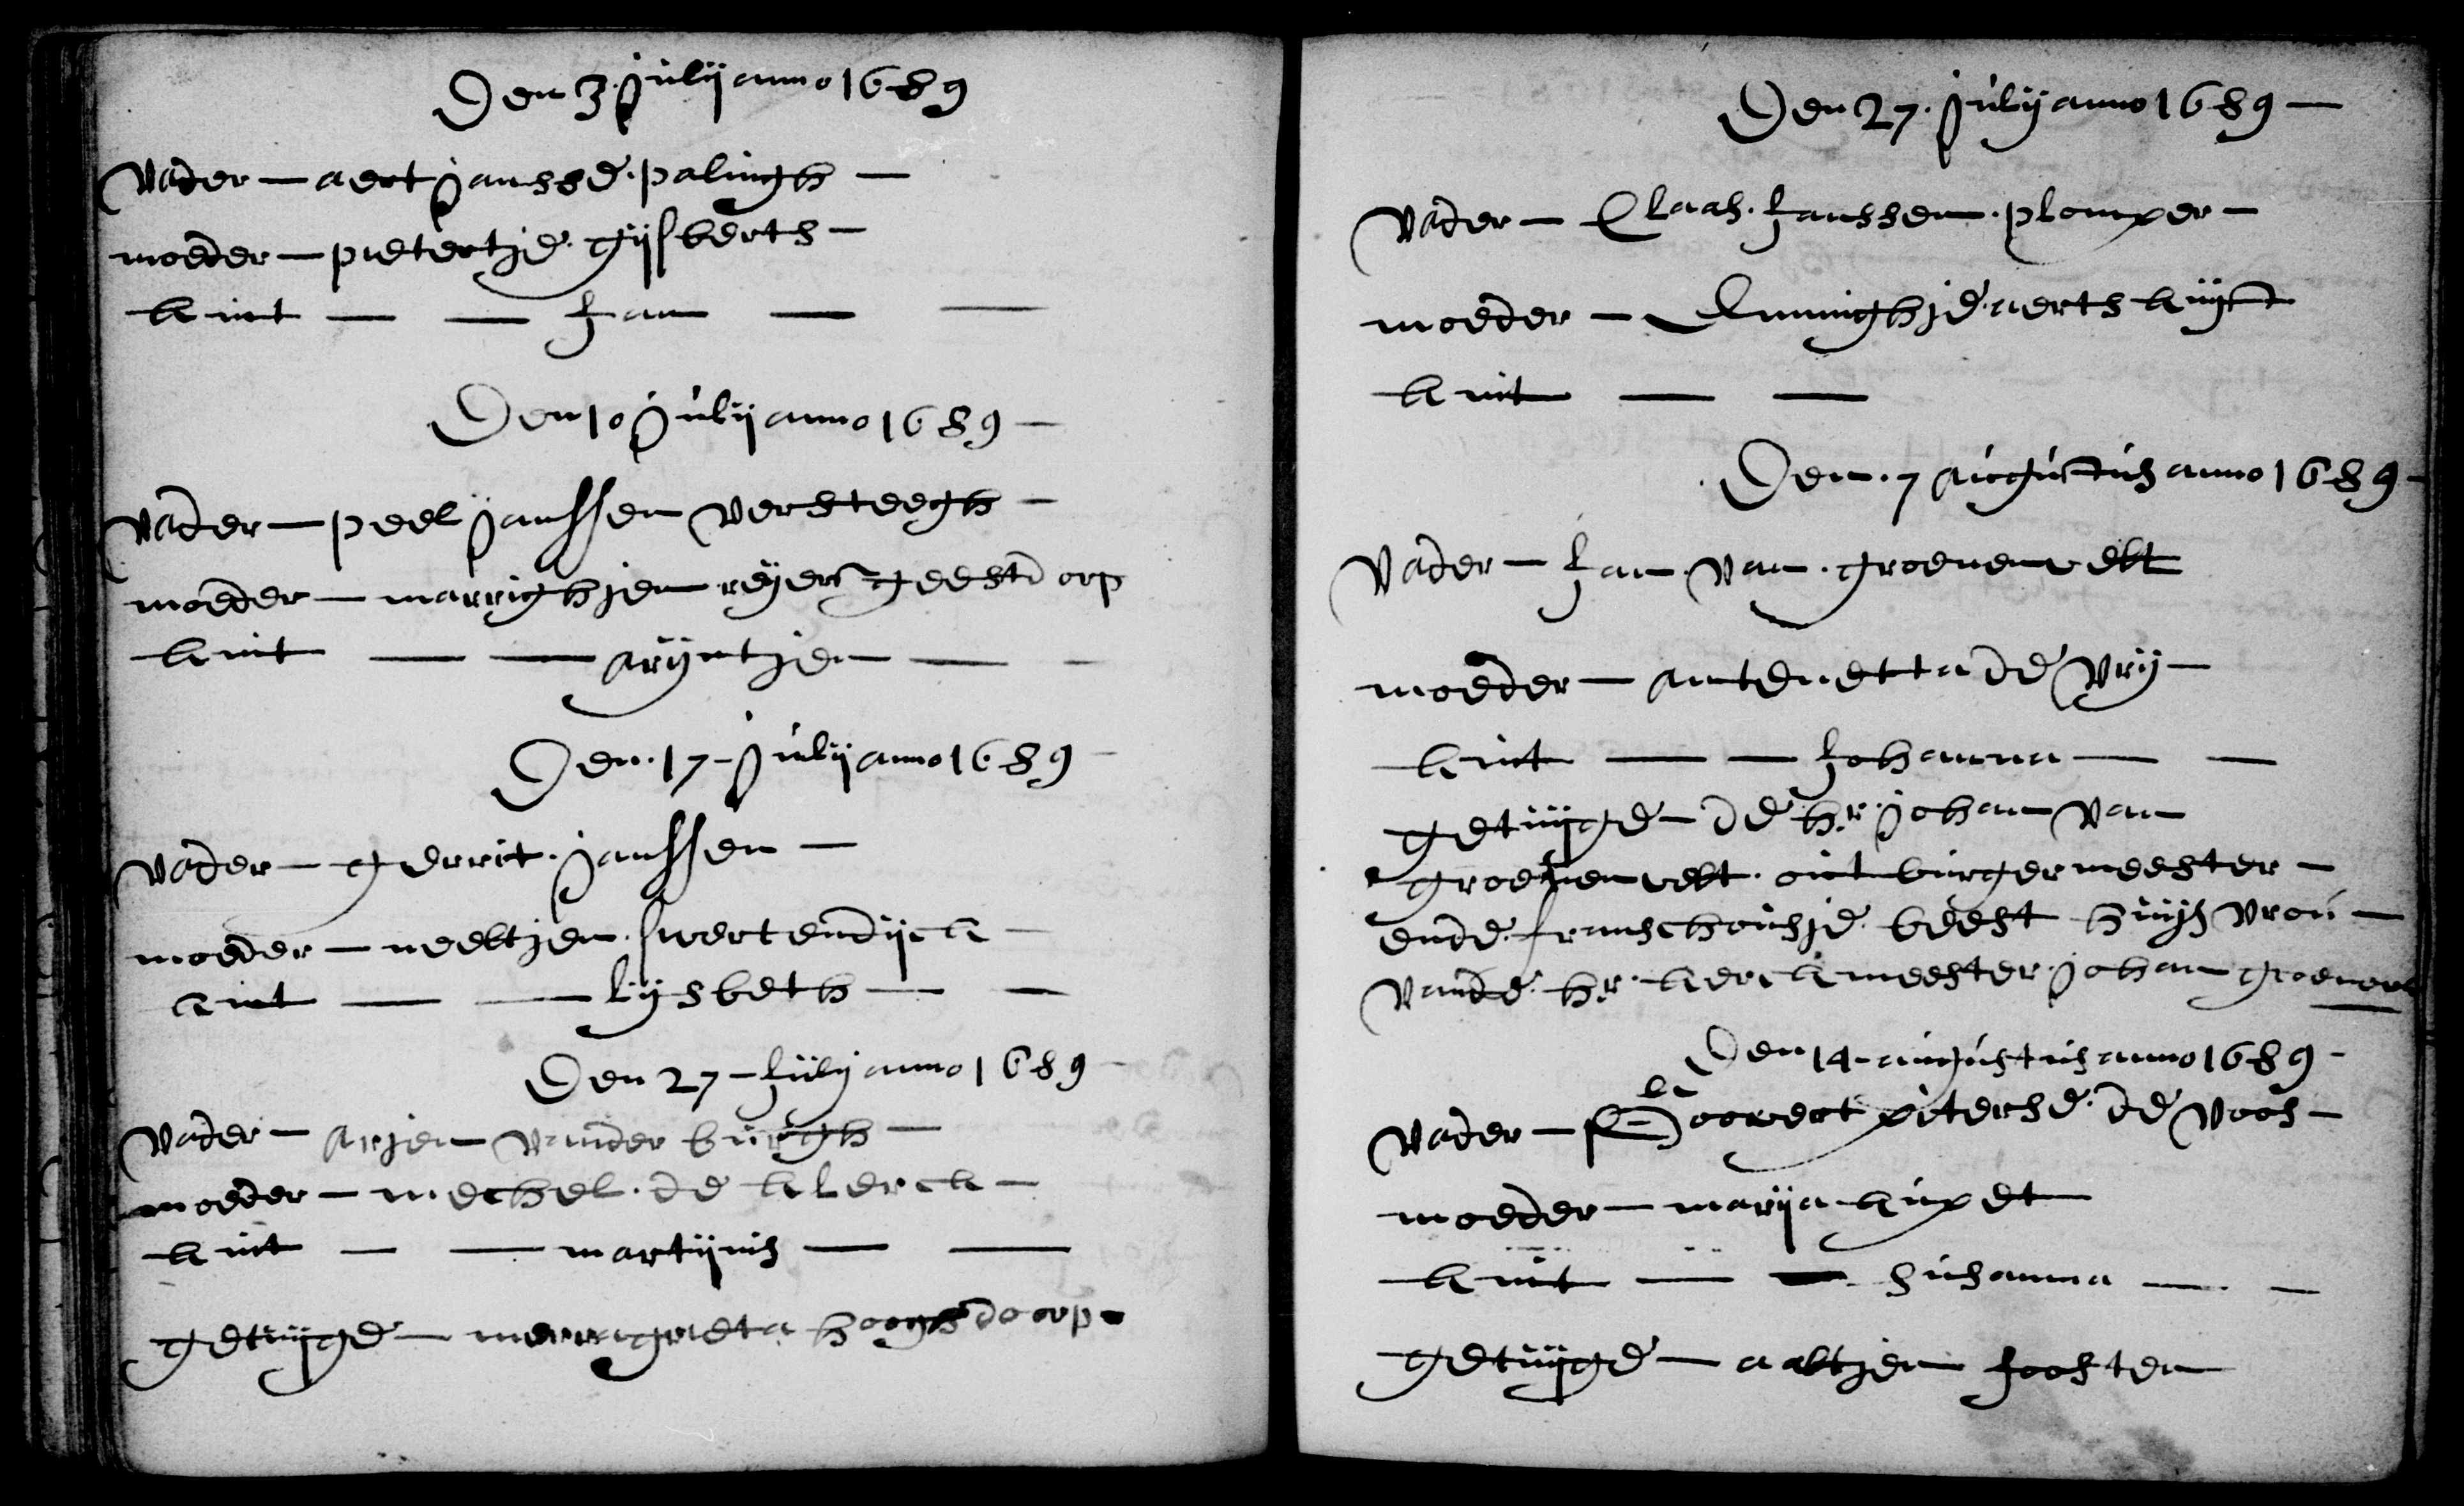 Den 3 Julij anno 1689
Vader — aert Jansse. palingh —
moeder — pietertje. gijsberts —
kint — — Jan — —
Den 10 Julij anno 1689 —
Vader — peel Janssen versteegh —
moeder — marrighjen reijers geestdorp
kint — — arijntjen — —
Den. 17 - Julij anno 1689 —
Vader — gerrit. Janssen —
moeder — neeltjen. swertendijck —
kint — — lijsbeth — —
Den 27 — Julij anno 1689 —
Vader — arjen vander burgh —
moeder — mechel. de klerck —
kint — — martijnis — —
getuijge — merragrieta hooghdoorp
Den 27. Julij anno 1689 —
Vader — Claas. Janssen. plomper —
moeder — Enninghje. aerts kuijst
kint — —
Den. 7 augustus anno 1689 —
Vader — Jan. van. groenenvelt
moeder — antenetta de vrij —
kint — — Johanna — —
getuijge — de hr. Johan van
groenenvelt. out burgermeester —
ende. franschoisje. beest huijs vrou —
vande. hr. kerckmeester Johan groenevel
Den 14 - augustus anno 1689 -
Vader — Goovert pitersse. de voos —
moeder — marija kupet
kint — — susanna — —
getuijge — aaltjen Joosten